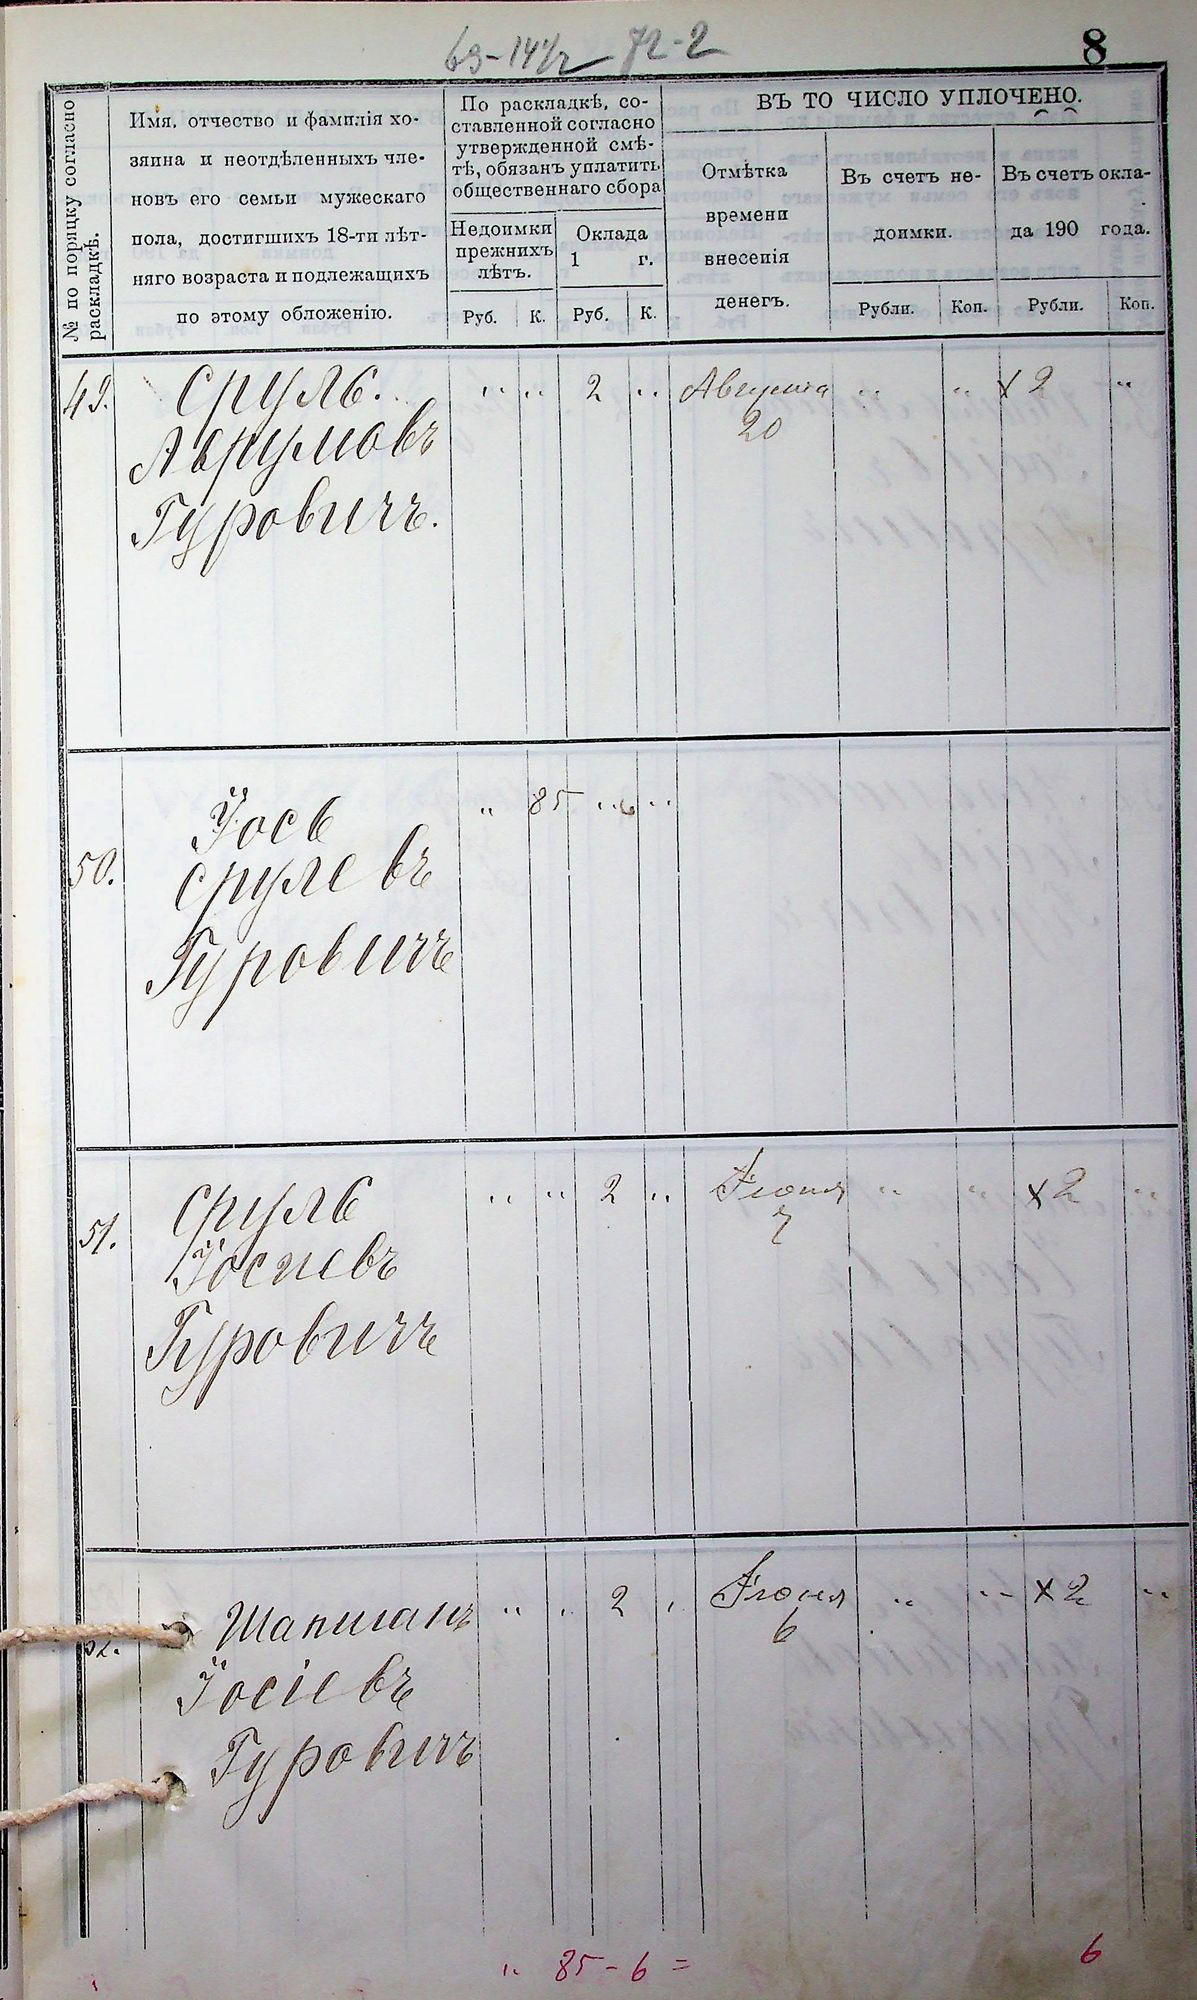 72-2
8
№ по порядку согласно раскладкѣ.
Имя, отчество и фамилія хо-
зяина и неотдѣленныхъ чле-
новъ его семьи мужескаго
пола, достигшихъ 18-ти лѣт-
няго возраста и подлежащихъ
по этому обложенію.
По раскладкѣ, со-
ставленной согласно
утвержденной смѣ-
тѣ, обязанъ уплатить
общественнаго сбора
Недоимки
прежнихъ
лѣтъ.
Оклада
1 г.
Руб. К. Руб. К.
ВЪ ТО ЧИСЛО УПЛОЧЕНО.
Отмѣтка
времени
внесенія
денегъ.
Въ счетъ не-
доимки.
Въ счетъ окла-
да 190 года.
Рубли. Коп. Рубли. Коп.
49. Сруль. " " 2 " Августа " " x 2 "
Аврумовъ 20
Гуровичъ.
50. Іось " 85 " "
Срулевъ
Гуровичъ
51. Сруль " " 2 " Іюня " " x 2 "
Іосиевъ 7
Гуровичъ
52. Шапшанъ " " 2 " Іюня " " x 2 "
Іосіевъ 6
Гуровичъ
" 85 - 6 = 6